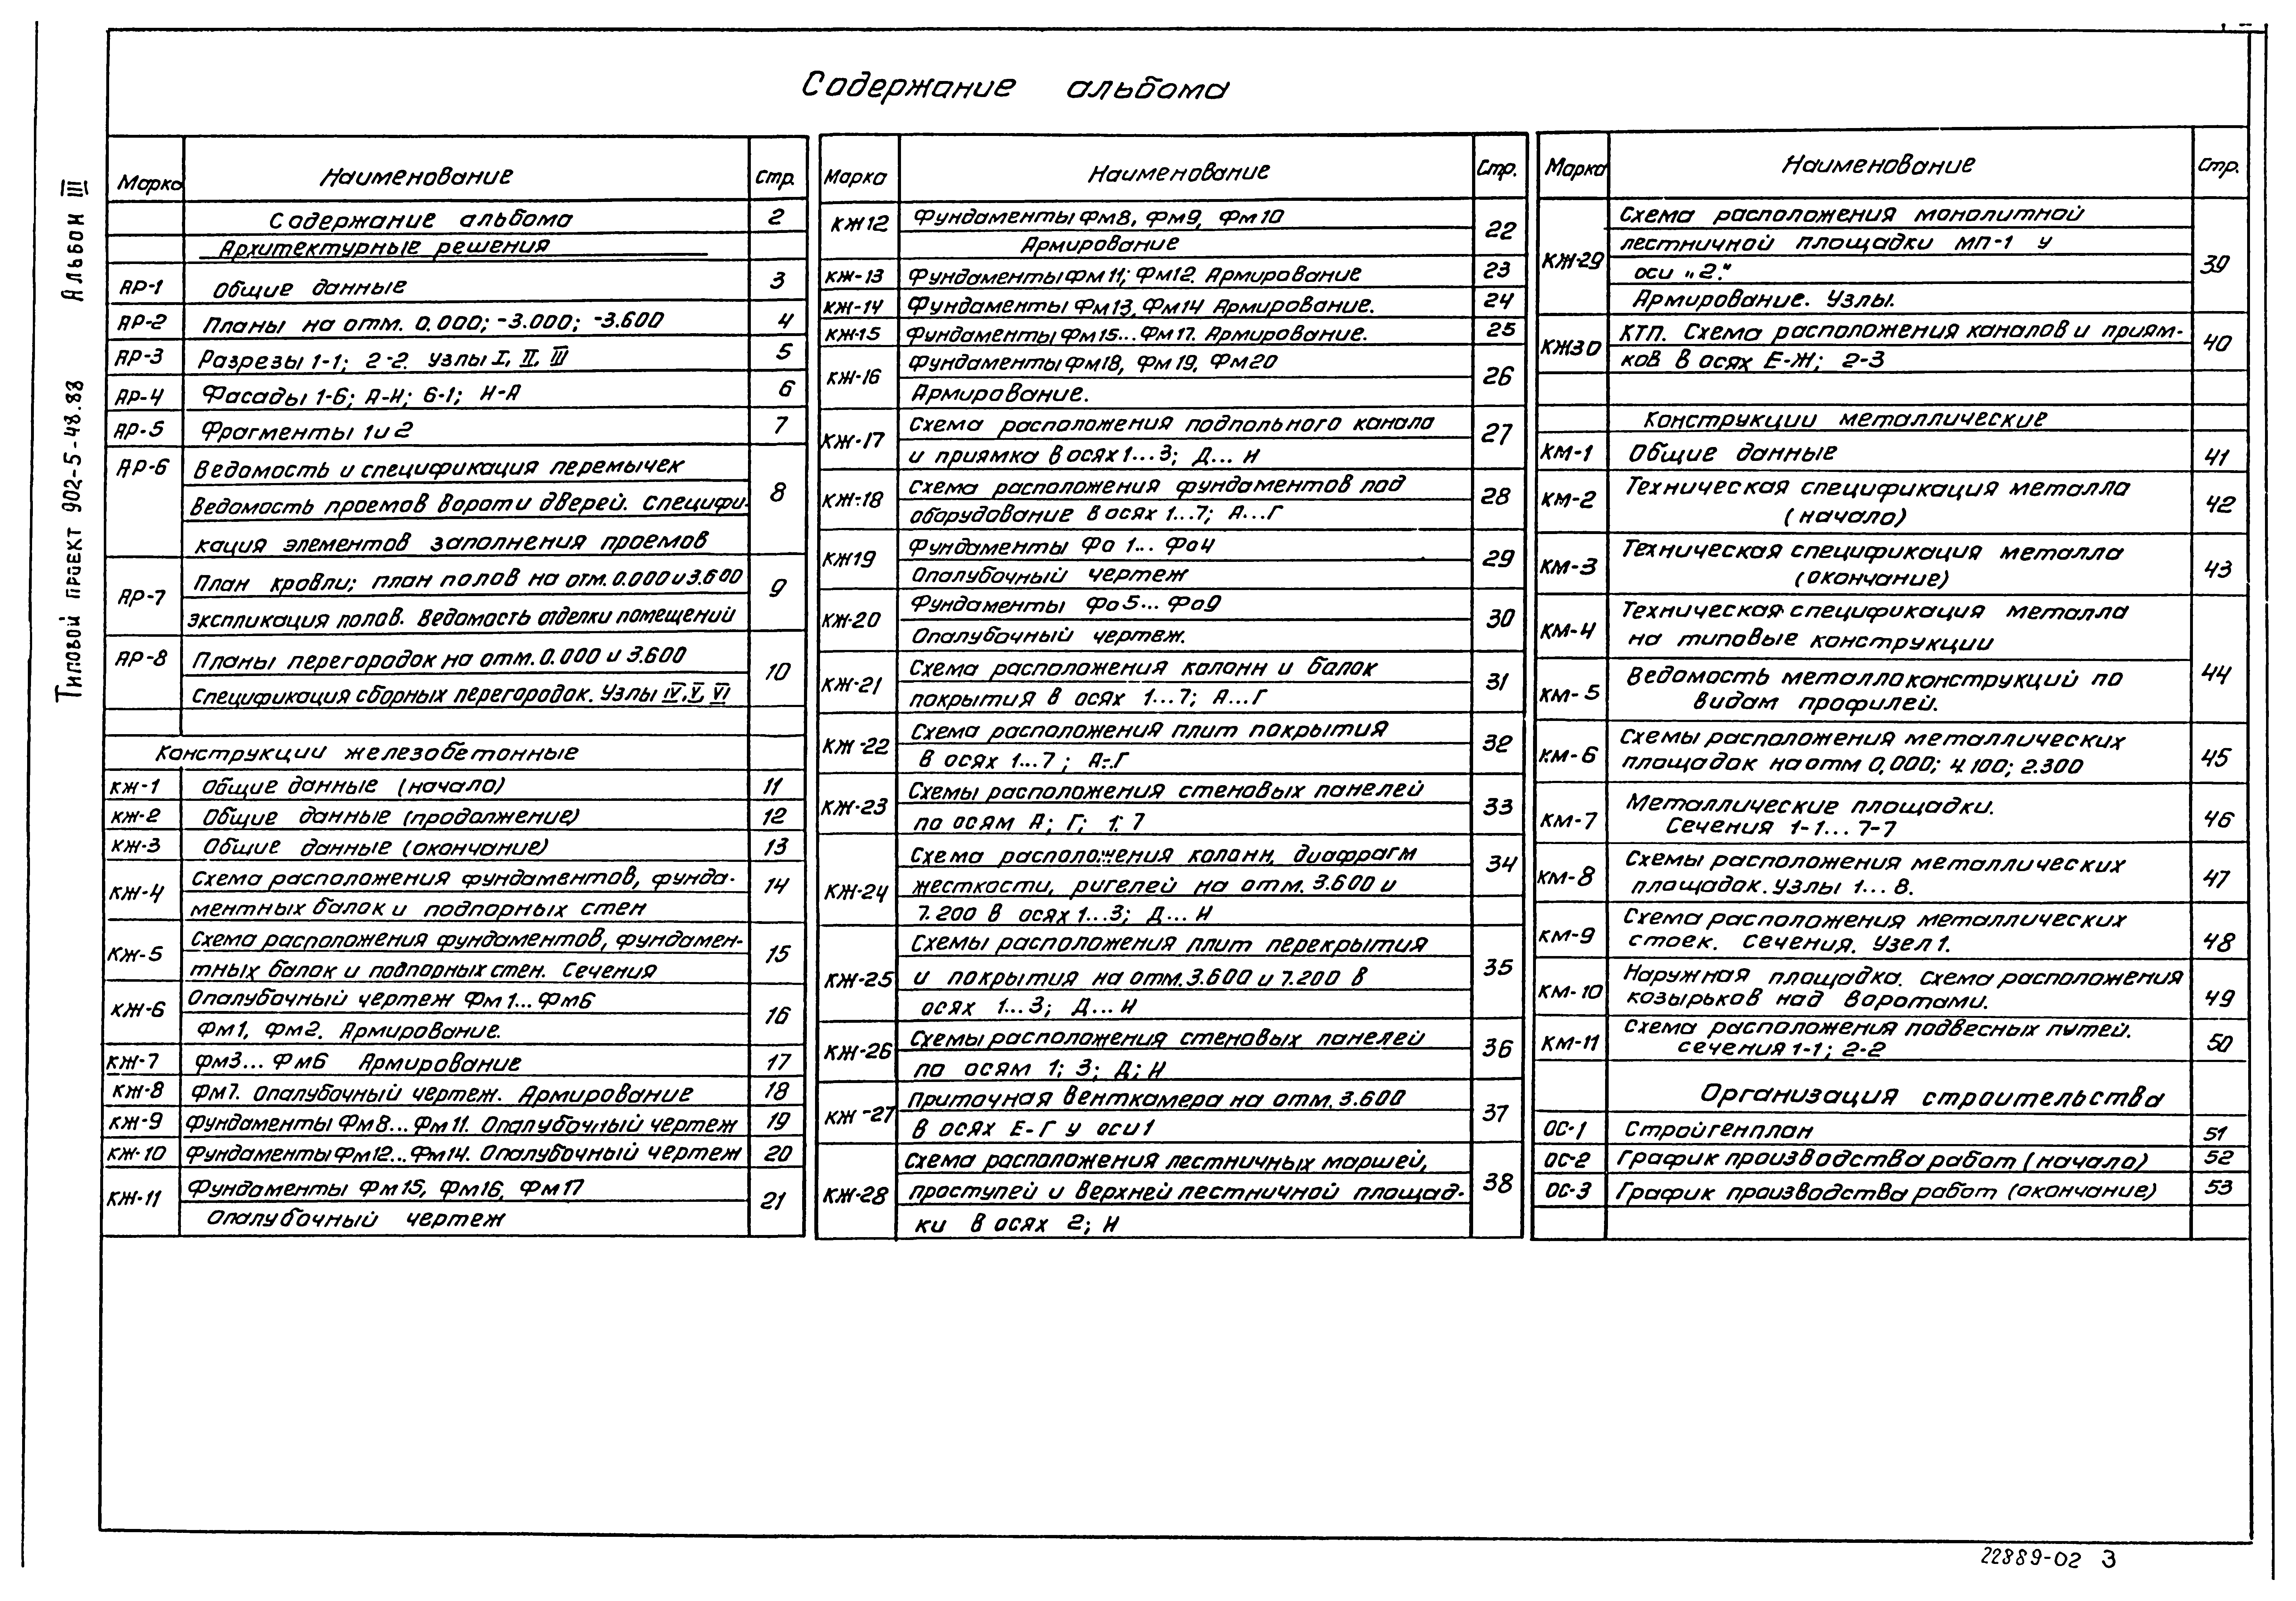 Содержание альбома
Типовой проект 902-5-48.88 Альбом III
Марка Наименование Стр.
Содержание альбома 2
Архитектурные решения
АР-1 Общие данные 3
АР-2 Планы на отм. 0.000; -3.000; -3.600 4
АР-3 Разрезы 1-1; 2-2. Узлы I, II, III 5
АР-4 Фасады 1-6; А-И; 6-1; И-А 6
АР-5 Фрагменты 1 и 2 7
АР-6 Ведомость и спецификация перемычек 8
Ведомость проемов ворот и дверей. Специфи-
кация элементов заполнения проемов
АР-7 План кровли; план полов на отм. 0.000 и 3.600 9
экспликация полов. Ведомость отделки помещений
АР-8 Планы перегородок на отм. 0.000 и 3.600 10
Спецификация сборных перегородок. Узлы IV, V, VI
Конструкции железобетонные
КЖ-1 Общие данные (начало) 11
КЖ-2 Общие данные (продолжение) 12
КЖ-3 Общие данные (окончание) 13
КЖ-4 Схема расположения фундаментов, фунда- 14
ментных балок и подпорных стен
КЖ-5 Схема расположения фундаментов, фундамен- 15
тных балок и подпорных стен. Сечения
КЖ-6 Опалубочный чертеж Фм1... Фм6 16
Фм1, Фм2. Армирование.
КЖ-7 Фм3... Фм6 Армирование 17
КЖ-8 Фм7. Опалубочный чертеж. Армирование 18
КЖ-9 Фундаменты Фм8... Фм11. Опалубочный чертеж 19
КЖ-10 Фундаменты Фм12... Фм14. Опалубочный чертеж 20
КЖ-11 Фундаменты Фм15, Фм16, Фм17 21
Опалубочный чертеж
Марка Наименование Стр.
КЖ12 Фундаменты Фм8, Фм9, Фм10 22
Армирование
КЖ-13 Фундаменты Фм11; Фм12. Армирование 23
КЖ-14 Фундаменты Фм13, Фм14 Армирование. 24
КЖ-15 Фундаменты Фм15... Фм17. Армирование. 25
КЖ-16 Фундаменты Фм18, Фм19, Фм20 26
Армирование.
КЖ-17 Схема расположения подпольного канала 27
и приямка в осях 1...3; Д... И
КЖ-18 Схема расположения фундаментов под 28
оборудование в осях 1...7; А...Г
КЖ19 Фундаменты Фо 1... Фо4 29
Опалубочный чертеж
КЖ-20 Фундаменты Фо5... Фо9 30
Опалубочный чертеж.
КЖ-21 Схема расположения колонн и балок 31
покрытия в осях 1...7; А...Г
КЖ-22 Схема расположения плит покрытия 32
в осях 1...7; А...Г
КЖ-23 Схемы расположения стеновых панелей 33
по осям А; Г; 1; 7
КЖ-24 Схема расположения колонн, диафрагм 34
жесткости, ригелей на отм. 3.600 и
7.200 в осях 1...3; Д... И
КЖ-25 Схемы расположения плит перекрытия 35
и покрытия на отм. 3.600 и 7.200 в
осях 1...3; Д... И
КЖ-26 Схемы расположения стеновых панелей 36
по осям 1; 3; Д; И
КЖ-27 Приточная венткамера на отм. 3.600 37
в осях Е-Г у оси 1
КЖ-28 Схема расположения лестничных маршей, 38
проступей и верхней лестничной площад-
ки в осях 2; И
Марка Наименование Стр.
КЖ-29 Схема расположения монолитной 39
лестничной площадки МП-1 у
оси „2."
Армирование. Узлы.
КЖ30 КТП. Схема расположения каналов и приям- 40
ков в осях Е-Ж; 2-3
Конструкции металлические
КМ-1 Общие данные 41
КМ-2 Техническая спецификация металла 42
(начало)
КМ-3 Техническая спецификация металла 43
(окончание)
КМ-4 Техническая спецификация металла 44
на типовые конструкции
КМ-5 Ведомость металлоконструкций по
видам профилей.
КМ-6 Схемы расположения металлических 45
площадок на отм 0,000; 4.100; 2.300
КМ-7 Металлические площадки. 46
Сечения 1-1... 7-7
КМ-8 Схемы расположения металлических 47
площадок. Узлы 1... 8.
КМ-9 Схема расположения металлических 48
стоек. Сечения. Узел 1.
КМ-10 Наружная площадка. Схема расположения 49
козырьков над воротами.
КМ-11 Схема расположения подвесных путей. 50
сечения 1-1; 2-2
Организация строительства
ОС-1 Стройгенплан 51
ОС-2 График производства работ (начало) 52
ОС-3 График производства работ (окончание) 53
22889-02 3